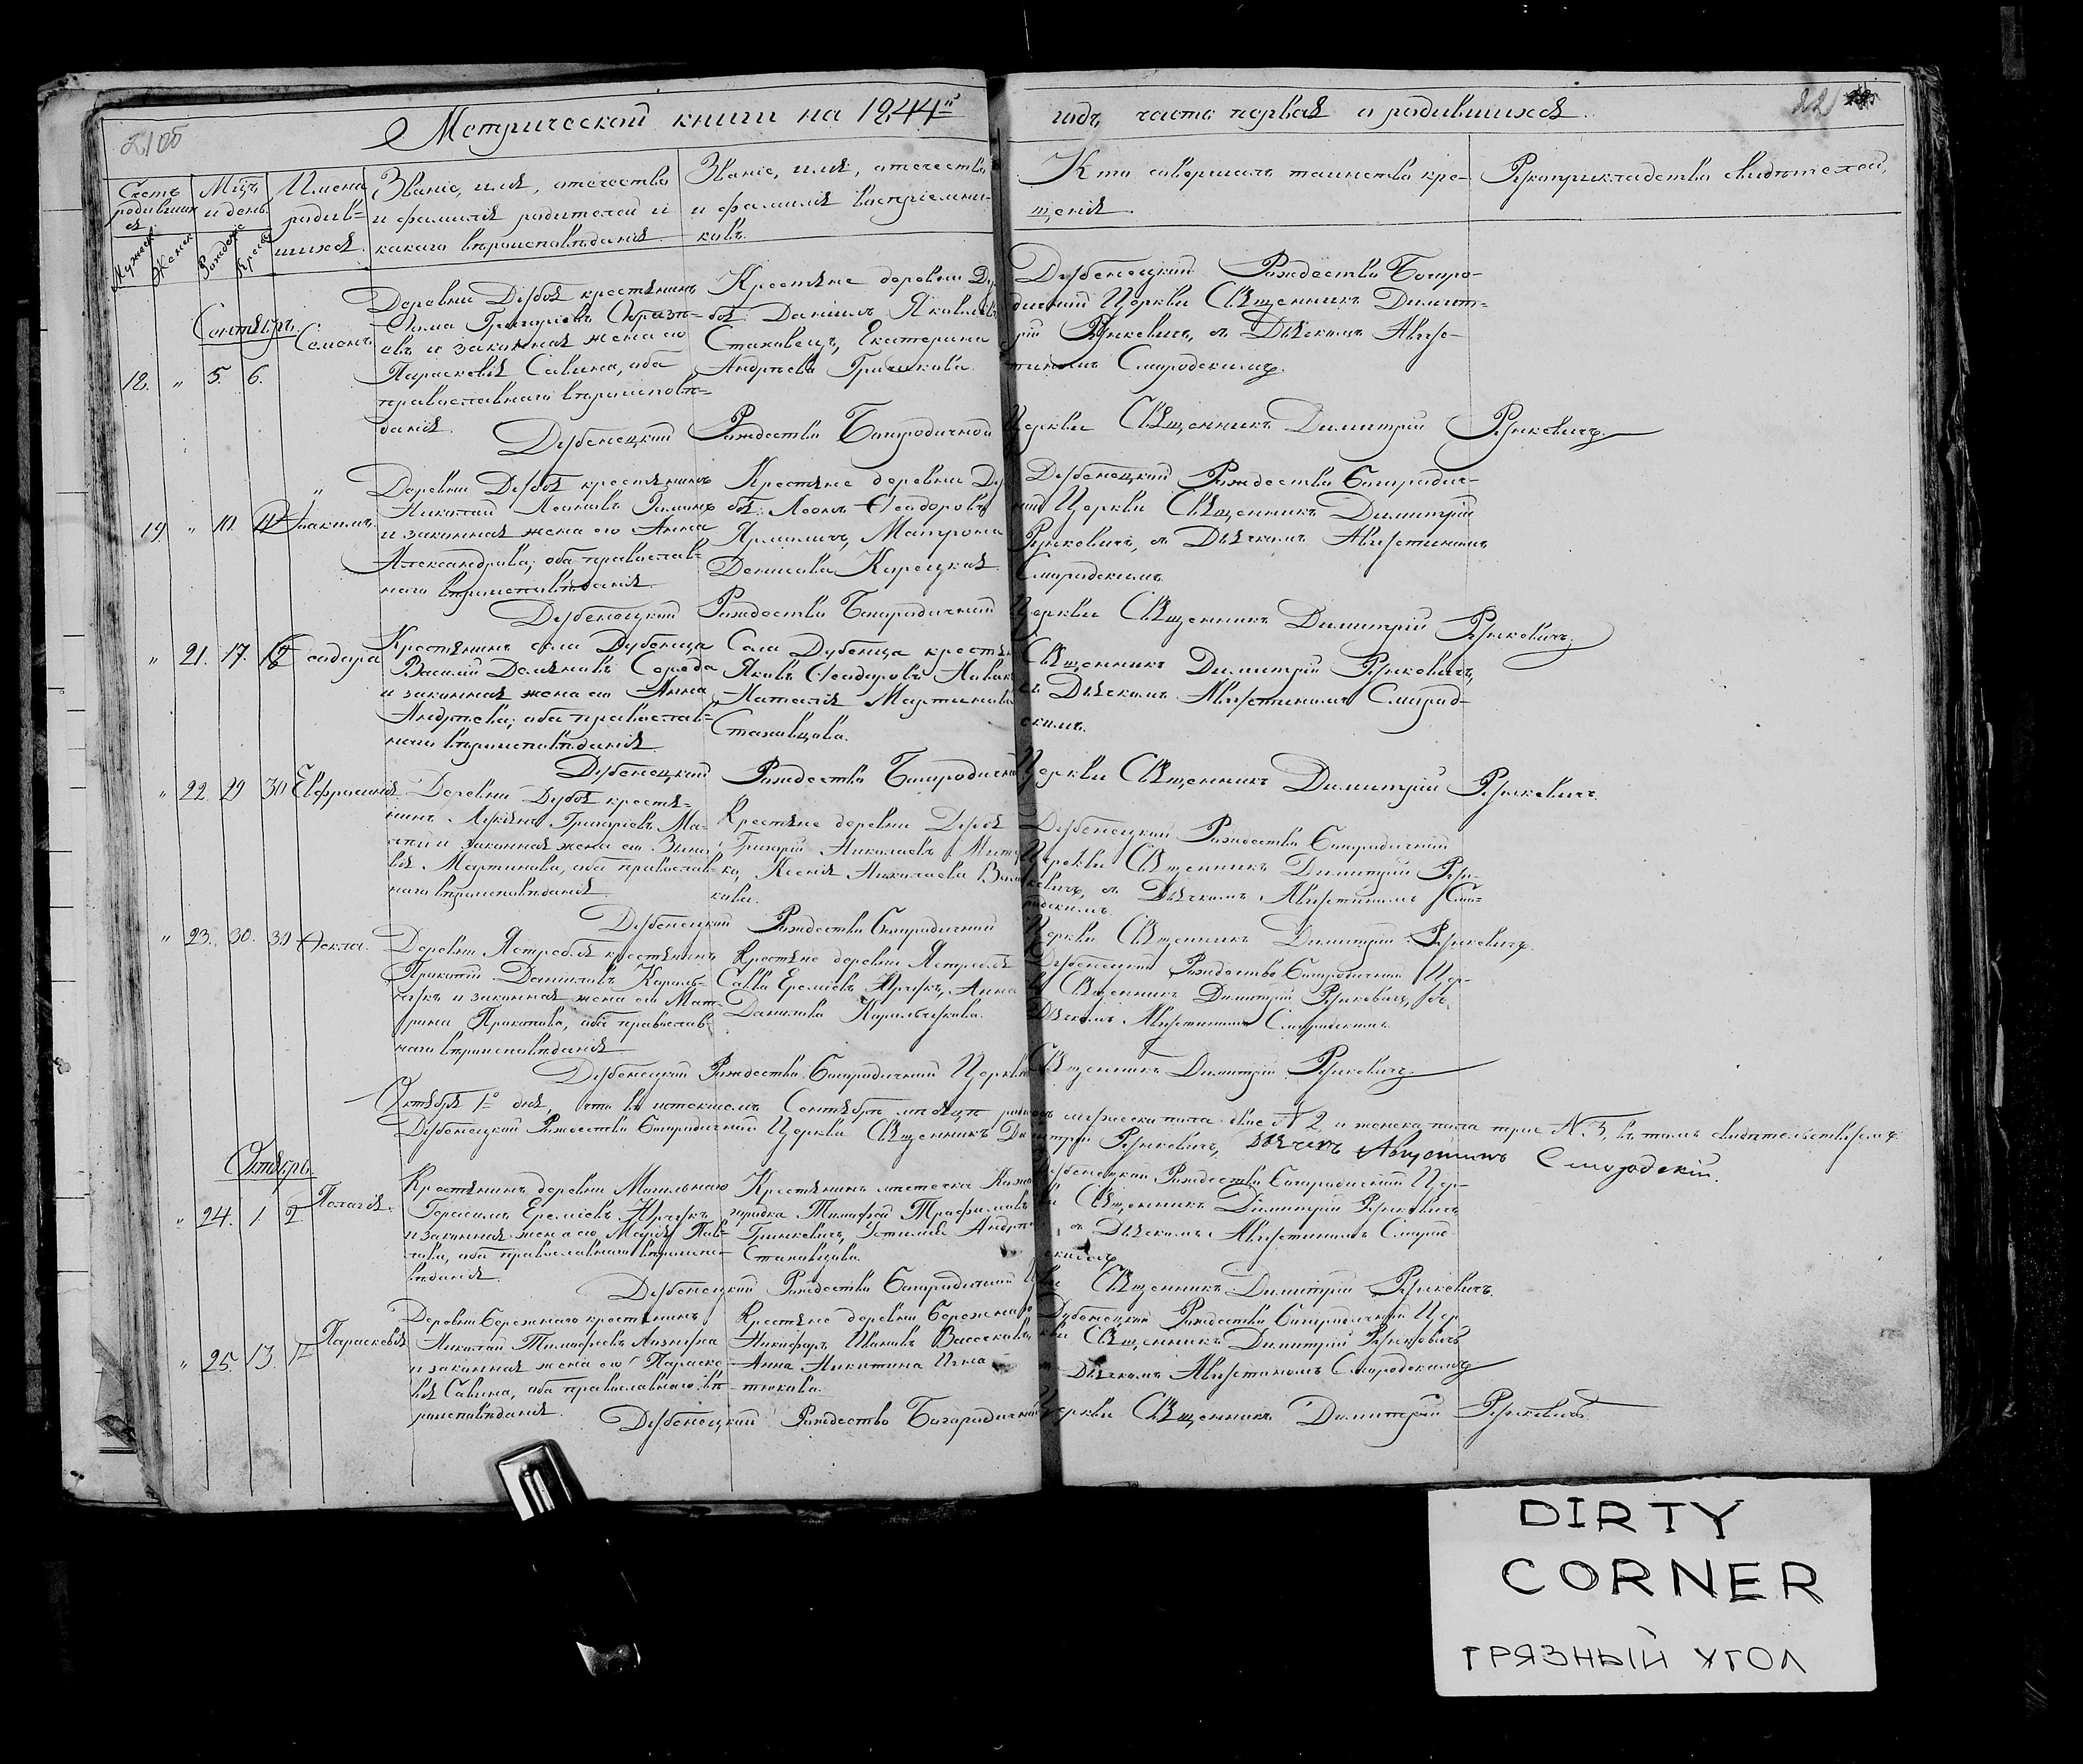 21об
Метрической книги на 1844й
годъ, часть первая о родившихся.
22
Счетъ родившихся
Мужеска
Женска
Мцъ и день
Рожденiе
Крещ.
Имена родив-
шихся.
Званiе, имя, отечество
и фамилiя родителей и
какаго вѣроисповѣданiя.
Званiе, имя, отечество
и фамилiя воспрiемни-
ковъ.
Кто совершалъ таинство кре-
щенiя.
Рукоприкладство свидѣтелей
Сентябрь.
18. " 5. 6.
Семенъ
Деревни Дубоя крестьянинъ
Фома Григорiевъ
и законная жена его
Параскевiя Савина, оба
православнаго вѣроисповѣ-
данiя.
Крестьяне деревни Ду-
боя Данiилъ Яковлевъ
Стаховецъ, Екатерина
Андреева Гричикова.
Дубенецкой Рождество Богоро-
дичной Церкви Священникъ Димит-
рiй Рункевичъ, съ Дьячкомъ Авгус-
тиномъ Смородскимъ.
Дубенецкой Рождество Богородичной Церкви Священникъ Димитрiй Рункевичъ.
19 " 10. 11
Iоакимъ
Деревни Дубоя крестьянинъ
Николай Леоновъ
и законная жена его Анна
Александрова; оба православ-
наго вѣроисповѣданiя.
Крестьяне деревни Ду-
боя: Леонъ Ѳеодоровъ
Ярмоличъ, Матрона
Денисова Корецкая.
Дубенецкой Рождество Богородич-
ной Церкви Священникъ Димитрiй
Рункевичъ, съ Дьячкомъ Августиномъ
Смородскимъ.
Дубенецкой Рождество Богородичной Церкви Священникъ Димитрiй Рункевичъ.
" 21. 17. 18
Ѳеодора
Крестьянинъ села Дубенца
Василiй Демяновъ Середа
и законная жена его Анна
Андреева; оба православ-
наго вѣроисповѣданiя.
Села Дубенца крестьяне
Яковъ Ѳеодоровъ
Наталiя Мартинова
Стаховцова.
Священникъ Димитрiй Рункевичъ,
съ Дьячкомъ Августиномъ Смород-
скимъ.
Дубенецкой Рождество Богородичной Церкви Священникъ Димитрiй Рункевичъ.
" 22. 29 30
Евфросинiя
Деревни Дубоя крестья-
нинъ Лукьянъ Григорiевъ
и законная жена его Зино-
вiя Мартинова, оба православ-
наго вѣроисповѣданiя.
Крестьяне деревни Дубоя
Григорiй Николаевъ
Ксенiя Николаева
Дубенецкой Рождество Богородичной
Церкви Священникъ Димитрiй Рун-
кевичъ, съ Дьячкомъ Августиномъ Смо-
родскимъ.
Дубенецкой Рождество Богородичной Церкви Священникъ Димитрiй Рункевичъ.
" 23. 30. 30
Ѳекла.
Деревни Ястребля крестьянинъ
Прокопiй Данiиловъ Кароль-
чукъ и законная жена его Мат-
рона Прокопова, оба православ-
наго вѣроисповѣданiя
Крестьяне деревни Ястребля
Савва Еремiевъ Юрчукъ, Анна
Данилова Карольчукова.
Дубенецкой Рождество Богородичной Цер-
кви Священникъ Димитрiй Рункевичъ, съ
Дьячкомъ Августиномъ Смородскимъ.
Дубенецкой Рождество Богородичной Церкви Священникъ Димитрiй Рункевичъ.
Октября 1го дня, что въ истекшемъ Сентябрѣ мѣсяцѣ родилось мужеска пола двое N 2, и женска пола трое N. 3, въ томъ свидѣтельствуемъ
Дубенецкой Рождество Богородичной Церкви Священникъ Димитрiй Рункевичъ, Дьячекъ Августинъ Смородскiй.
Октябрь.
" 24. 1. 2
Пелагiя.
Крестьянинъ деревни Могильнаго
Герасимъ Еремiевъ Юрчукъ
и законная жена его Марiя Пав-
лова, оба православнаго вѣроиспо-
вѣданiя.
Крестьянинъ мѣстечка
Тимофей Трофимовъ
Гринкевичъ, Устимiя
Стаховцова.
Дубенецкой Рождество Богородичной Цер-
кви Священникъ Димитрiй Рункевичъ
съ Дьячкомъ Августиномъ Смород-
скимъ.
Дубенецкой Рождество Богородичной Церкви Священникъ Димитрiй Рункевичъ.
" 25. 13. 14
Параскевiя
Деревни Бережнаго крестьянинъ
Николай Тимофеевъ
и законная жена его Параске-
вiя Савина, оба православнаго вѣ-
роисповѣданiя.
Крестьяне деревни Бережнаго
Никифоръ Ивановъ
Анна Никитина Игна-
тюкова.
Дубенецкой Рождество Богородичной Цер-
кви Священникъ Димитрiй Рункевичъ
съ Дьячкомъ Августиномъ Смородскимъ
Дубенецкой Рождество Богородичной Церкви Священникъ Димитрiй Рункевичъ
DIRTY
CORNER
ГРЯЗНЫЙ УГОЛ